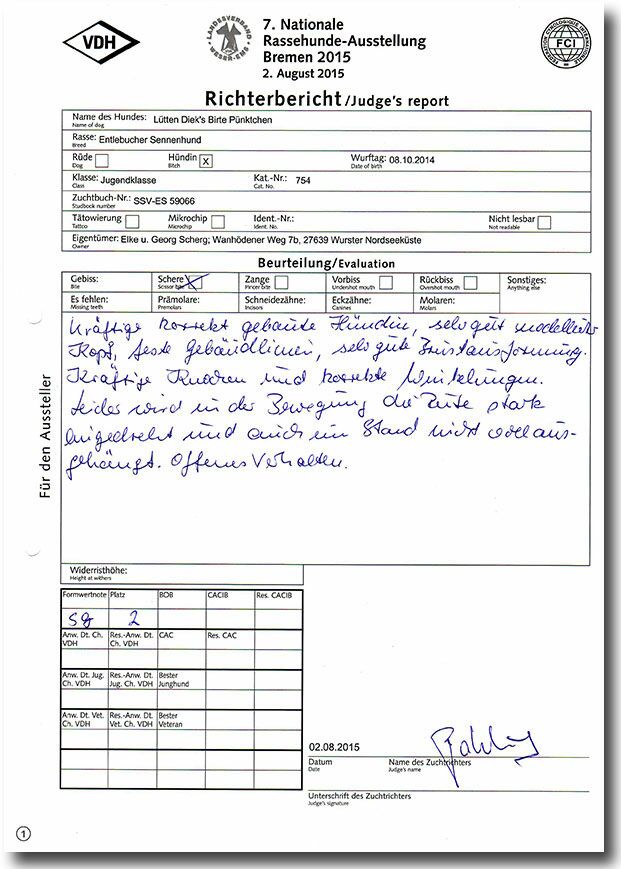 VDH
LANDESVERBAND
WESER-EMS
7. Nationale
Rassehunde-Ausstellung
Bremen 2015
2. August 2015
FEDERATION CYNOLOGIQUE INTERNATIONALE
FCI
Richterbericht/Judge's report
Name des Hundes: Lütten Diek's Birte Pünktchen
Name of dog
Rasse: Entlebucher Sennenhund
Breed
Rüde Hündin x Wurftag: 08.10.2014
Dog Bitch Date of birth
Klasse: Jugendklasse Kat.-Nr.: 754
Class Cat. No.
Zuchtbuch-Nr.: SSV-ES 59066
Studbook number
Tätowierung Mikrochip Ident.-Nr.: Nicht lesbar
Tattoo Microchip Ident. No. Not readable
Eigentümer: Elke u. Georg Scherg; Wanhödener Weg 7b, 27639 Wurster Nordseeküste
Owner
Beurteilung/Evaluation
Gebiss: Schere Zange Vorbiss Rückbiss Sonstiges:
Bite Scissor bite Pincer bite Undershot mouth Overshot mouth Anything else
Es fehlen: Prämolare: Schneidezähne: Eckzähne: Molaren:
Missing teeth Premolars Incisors Canines Molars
Kräftige korrekt gebaute Hündin, sehr gut modellierter
Kopf, feste Gebäudlinien, sehr gute Brustausformung.
Kräftige Knochen und korrekte Winkelungen.
Leider wird in der Bewegung die Rute stark
eingedreht und auch im Stand nicht voll aus-
gehängt. Offenes Verhalten.
Für den Aussteller
Widerristhöhe:
Height at withers
Formwertnote Platz BOB CACIB Res. CACIB
sg 2
Anw. Dt. Ch. VDH Res.-Anw. Dt. Ch. VDH CAC Res. CAC
Anw. Dt. Jug. Ch. VDH Res.-Anw. Dt. Jug. Ch. VDH Bester Junghund
Anw. Dt. Vet. Ch. VDH Res.-Anw. Dt. Vet. Ch. VDH Bester Veteran
02.08.2015
Datum Name des Zuchtrichters
Date Judge's name
Unterschrift des Zuchtrichters
Judge's signature
1